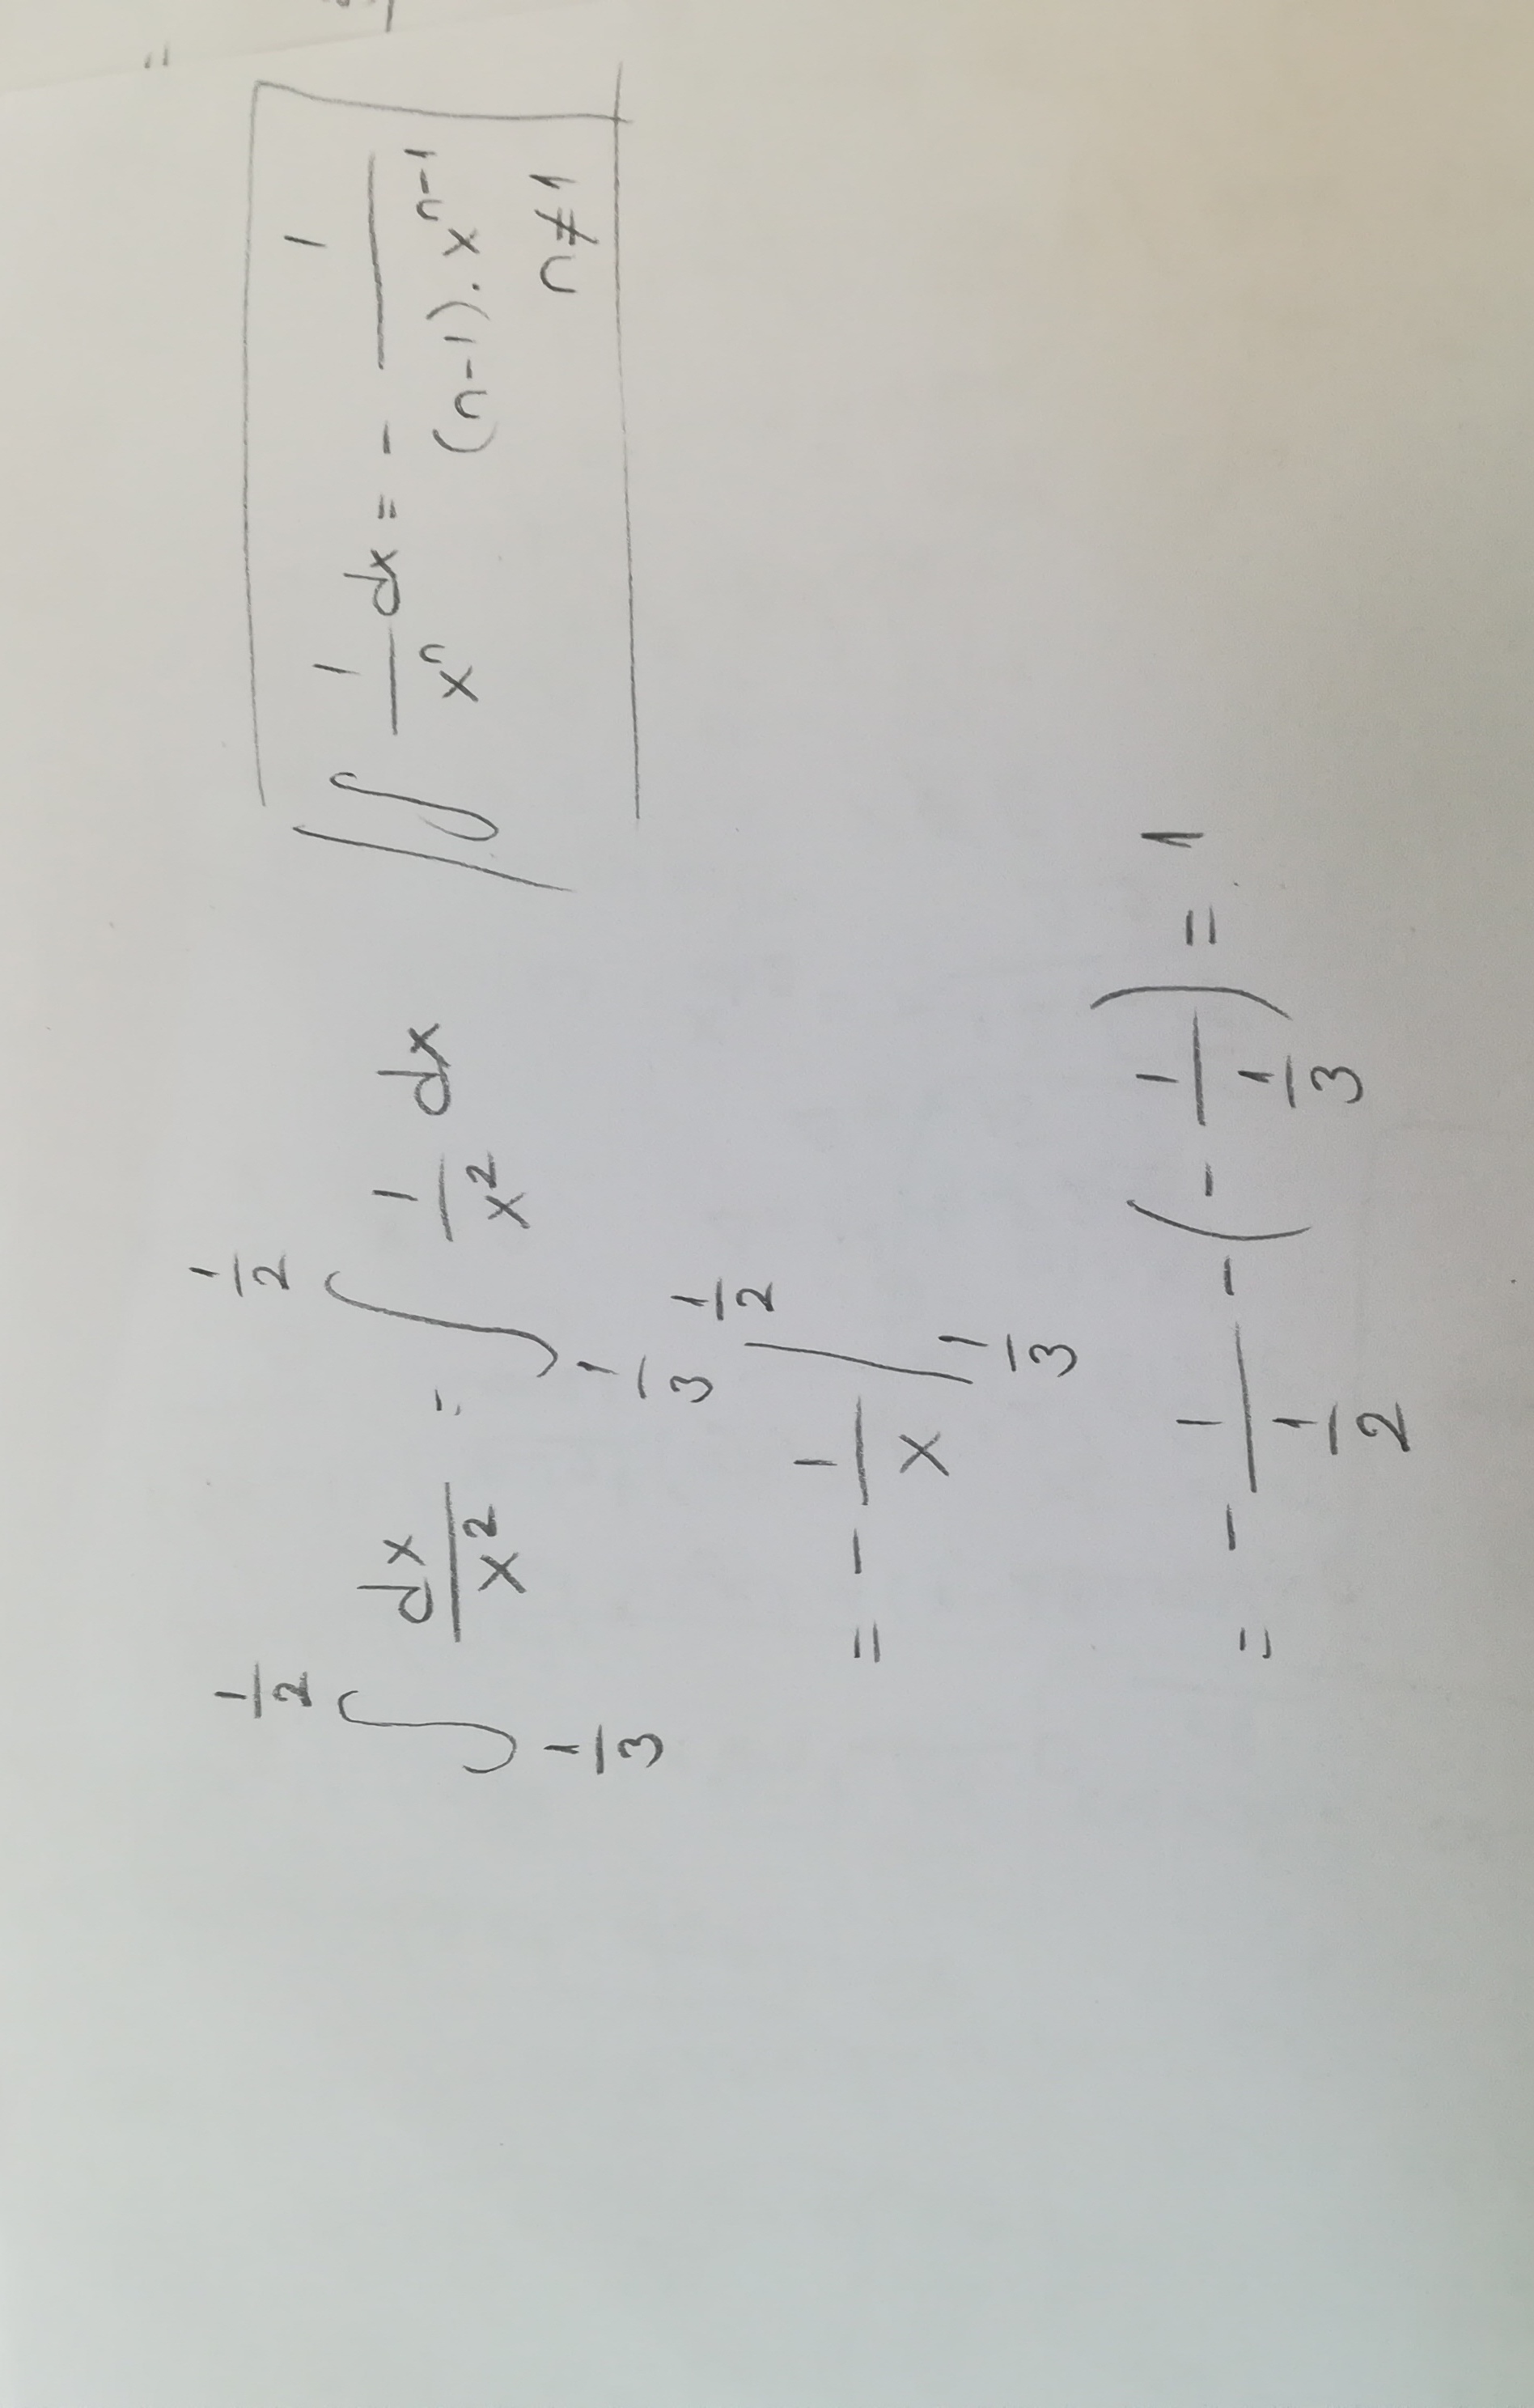 ∫_{1/3}^{1/2} dx/x² = ∫_{1/3}^{1/2} 1/x² dx
∫ 1/xⁿ dx = - 1/((n-1)·xⁿ⁻¹)
n≠1
= - 1/x |_{1/3}^{1/2}
= - 1/(1/2) - (- 1/(1/3)) = 1